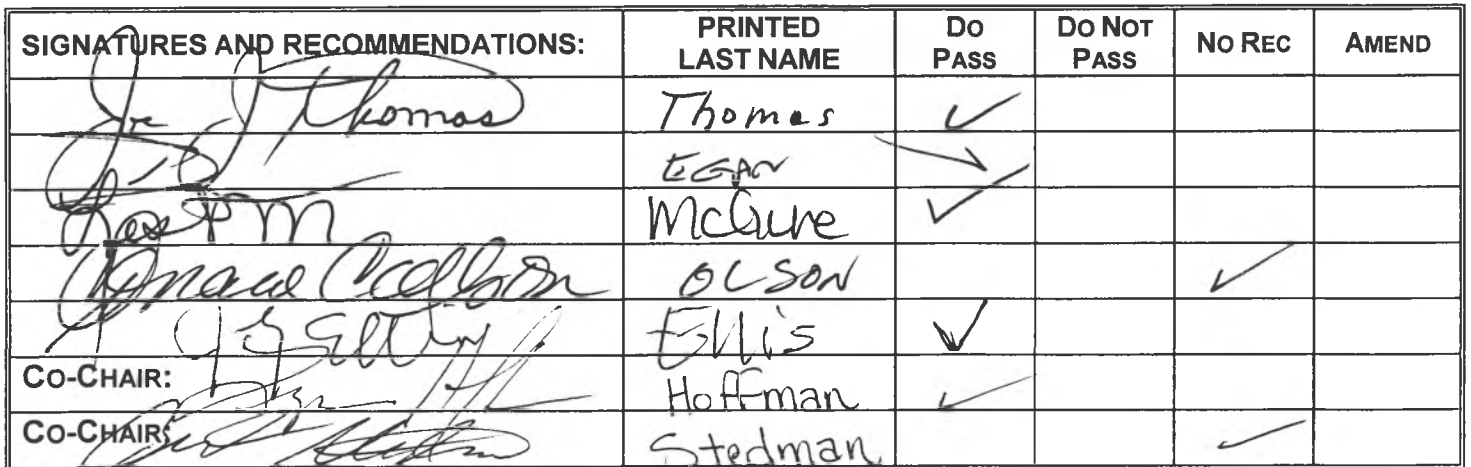 SIGNATURES AND RECOMMENDATIONS: PRINTED LAST NAME DO PASS DO NOT PASS NO REC AMEND
Joe J Thomas Thomas ✓
EGAN
McGuire ✓
OLSON ✓
Ellis ✓
CO-CHAIR: Hoffman ✓
CO-CHAIR: Stedman ✓